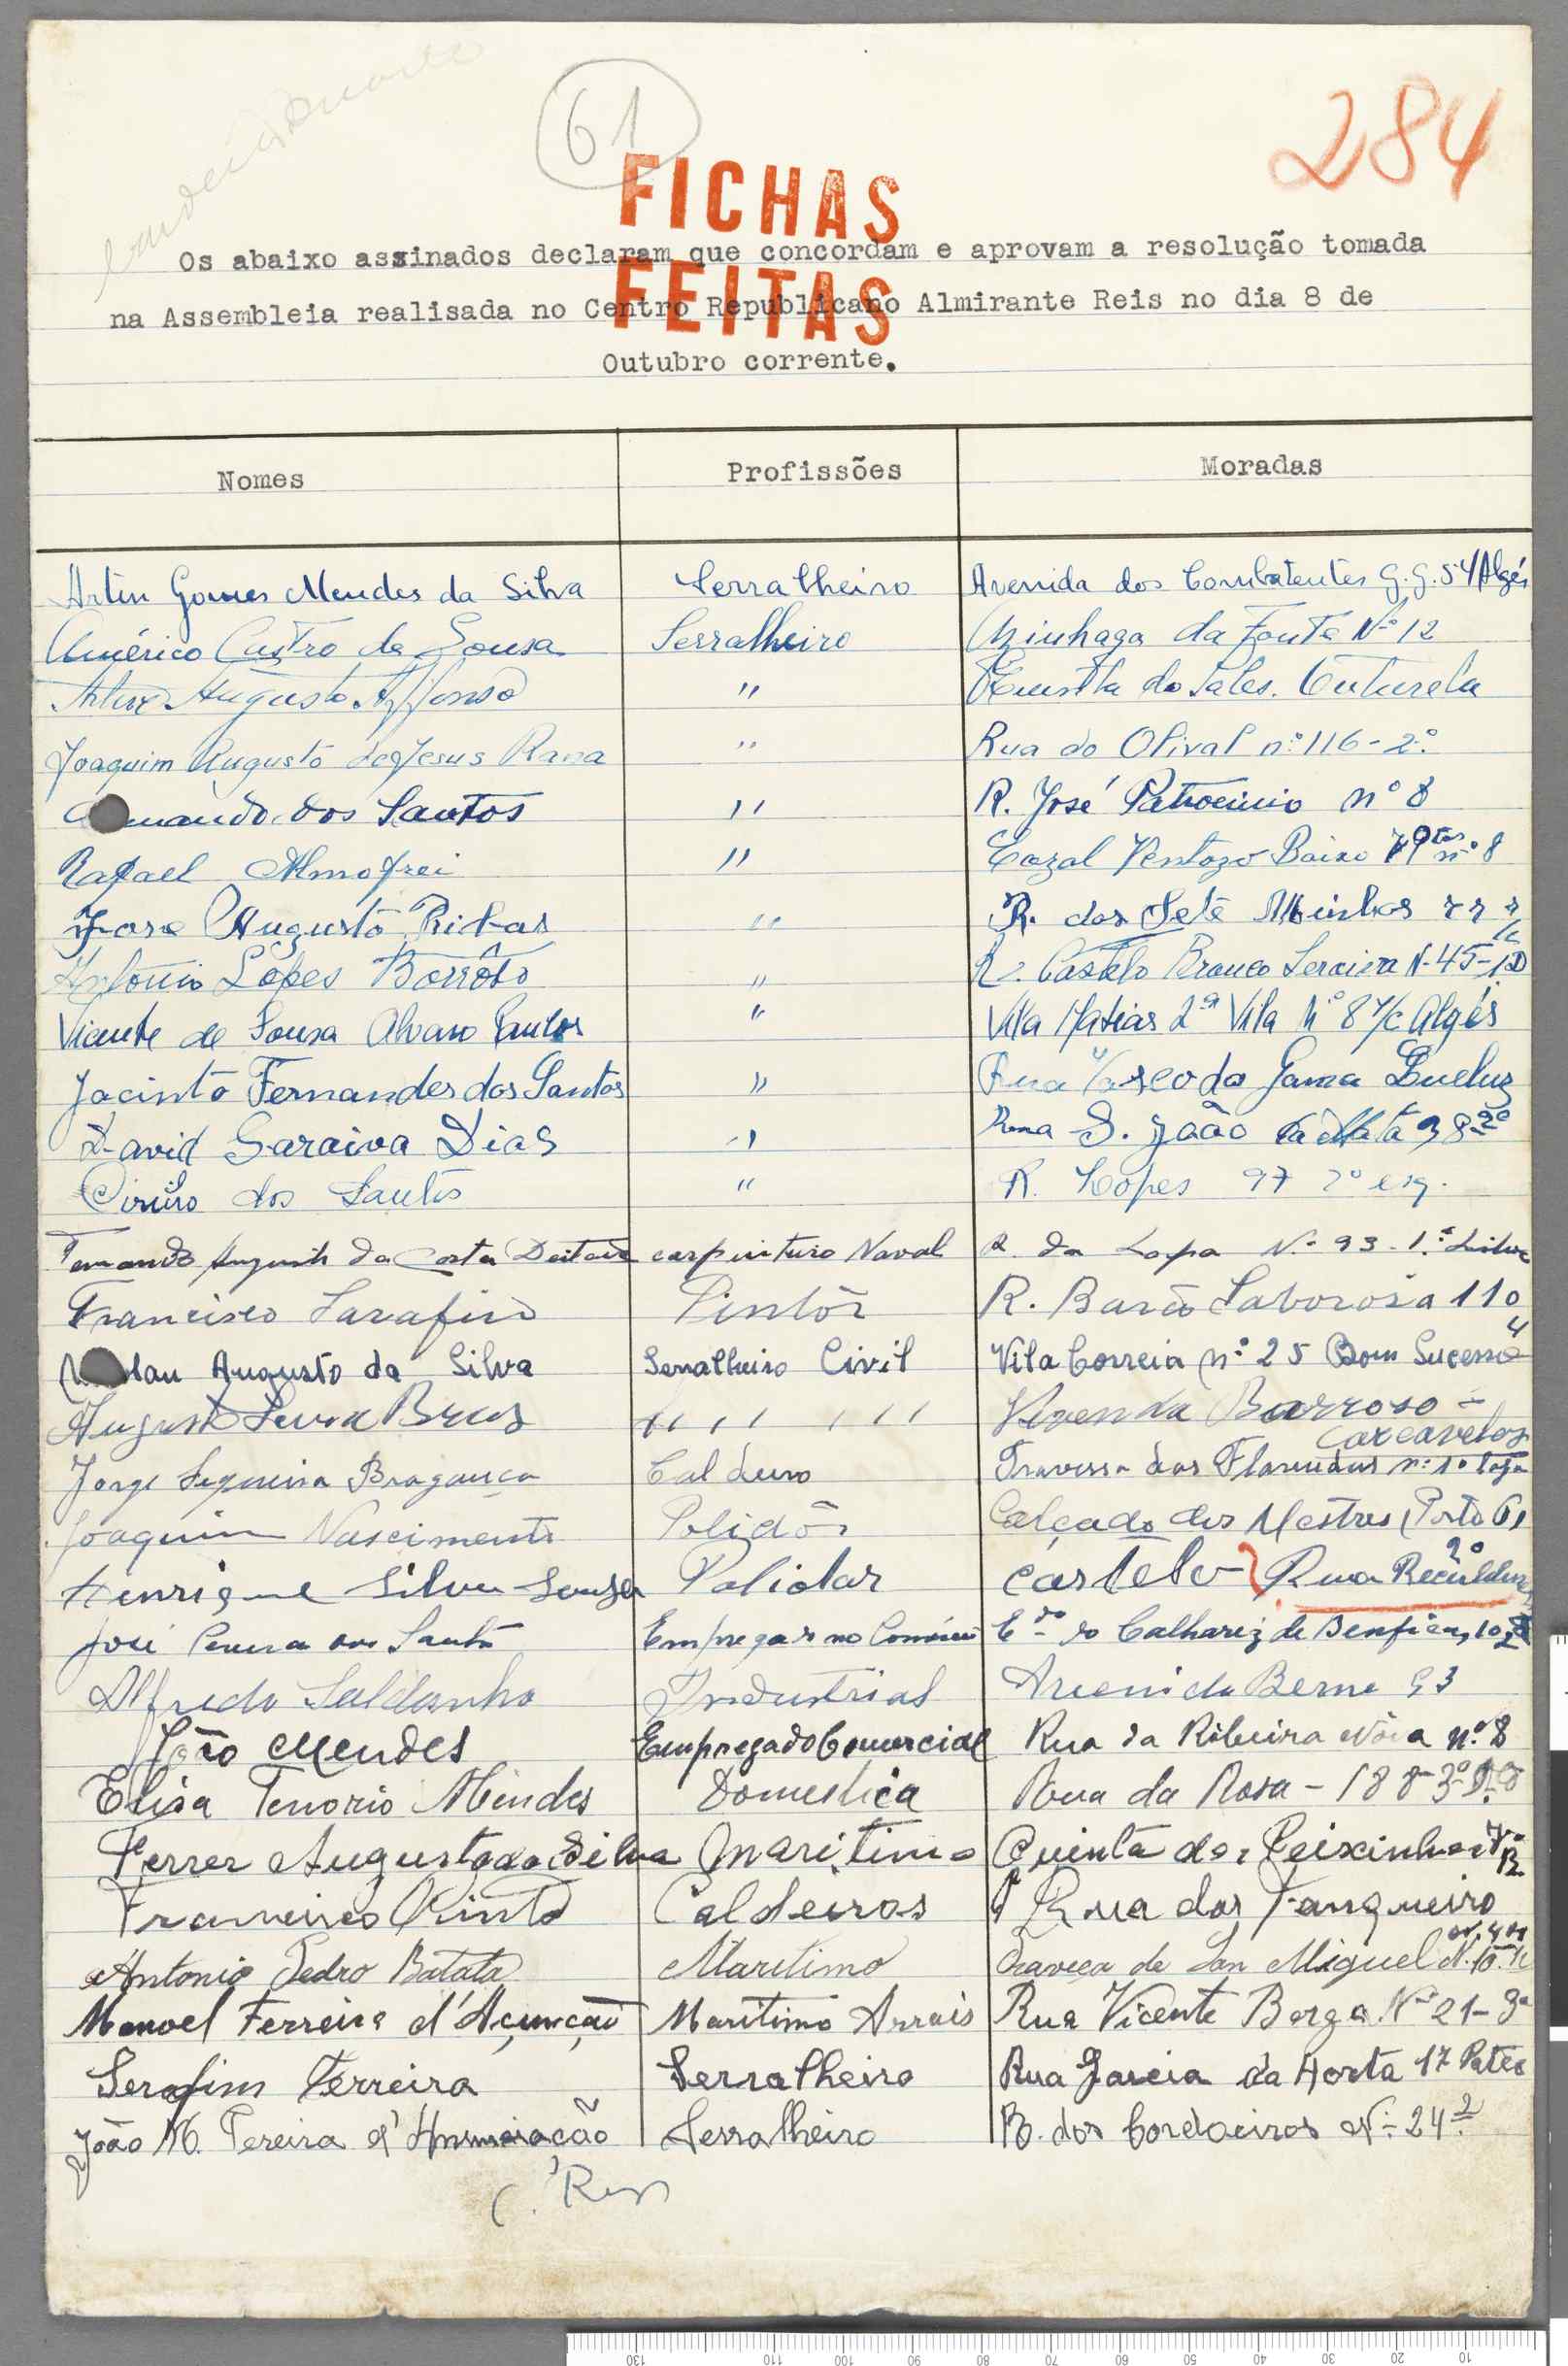 61
284
FICHAS
FEITAS
Os abaixo assinados declaram que concordam e aprovam a resolução tomada
na Assembleia realisada no Centro Republicano Almirante Reis no dia 8 de
Outubro corrente.
Nomes Profissões Moradas
Gomes Mendes da Silva Serralheiro Avenida dos Combatentes G. G. 54 Algés
Américo Castro de Sousa Serralheiro Azinhaga da Fonte Nº 12
Artur Augusto Affonso " do Sales. Outurela
Joaquim Augusto de Jesus Rana " Rua do Olival nº 116-2º
dos Santos " R. José Patrocinio nº 8
Rafael Almofrei " Cazal Ventozo Baixo nº 8
José Augusto Ribas " R. das Sete Moinhos
António Lopes Barrôto " Castelo Branco Saraiva N-45-1º D
Vicente de Sousa Alvaro Santos " Vila Matias 2ª Vila Nº 8 r/c Algés
Jacinto Fernandes dos Santos " Rua Vasco da Gama Queluz
David Saraiva Dias " Rua S. João da Mata 38 2º
dos Santos " R. Lopes 97 2º esq.
Fernando Augusto da Costa carpinteiro Naval R. da Lapa Nº 93-1º Lisboa
Francisco Sarafino Pintôr R. Barão Saborosa 110
4
Augusto da Silva Serralheiro Civil Vila Correia nº 25 Bom Sucesso
Augusto " " Vivenda Barroso -
Carcavelos
Jorge Siqueira Bragança Travessa das nº 10
Joaquim Nascimento Polidôr Calçada dos Mestres
Henrique Silva Sousa Polidor Castelo Rua
José Pereira dos Santos Empregado no Comércio Eda do Calhariz de Benfica, 10
Alfredo Saldanha Industrial Avenida Berne 53
João Mendes Empregado Comercial Rua da Ribeira Nova nº 8
Elisa Tenorio Mendes Domestica Rua da Rosa - 188-3º
Ferrer Augusto da Silva Maritimo Quinta dos Peixinhos
Francisco Pinto Caldeiros Rua dos Fanqueiro
Antonio Pedro Batata Maritimo Traveça de San Miguel
Manoel Ferreira d'Açunção Maritimo Arrais Rua Vicente Borga Nº 21-3º
Serafim Ferreira Serralheiro Rua Garcia da Horta 17 Pateo
João M. Pereira d'Anunciação Serralheiro R. dos Cordoeiros Nº 24 2º